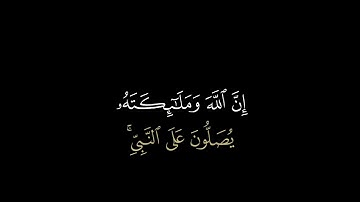 إِنَّ ٱللَّهَ وَمَلَـٰٓئِكَتَهُۥ
يُصَلُّونَ عَلَى ٱلنَّبِىِّۚ